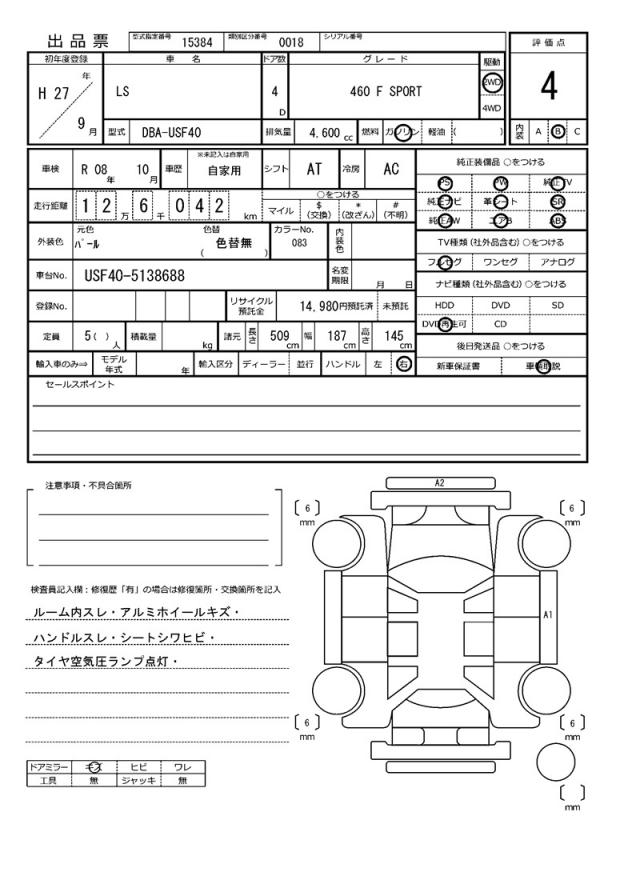 出品票 型式指定番号 15384 類別区分番号 0018 シリアル番号
初年度登録 車名 ドア数 グレード 駆動 評価点
H 27 年 9 月 LS 4 D 460 F SPORT 2WD 4WD 4
型式 DBA-USF40 排気量 4,600 cc 燃料 ガソリン 軽油 ( ) 内装 A B C
車検 R 08 年 10 月 車歴 ※未記入は自家用 自家用 シフト AT 冷房 AC 純正装備品 ○をつける
PS PW 純正TV
走行距離 1 2 万 6 千 0 4 2 km ○をつける マイル $ (交換) * (改ざん) # (不明) 純正ナビ 革シート SR
純正AW エアB ABS
外装色 元色 パール 色替 色替無 ( ) カラーNo. 083 内装色 TV種類 (社外品含む) ○をつける
フルセグ ワンセグ アナログ
車台No. USF40-5138688 名変期限 月 日 ナビ種類 (社外品含む) ○をつける
登録No. リサイクル預託金 14,980円預託済 未預託 HDD DVD SD
DVD再生可 CD
定員 5( ) 人 積載量 kg 諸元 長さ 509 cm 幅 187 cm 高さ 145 cm 後日発送品 ○をつける
輸入車のみ⇒ モデル年式 年 輸入区分 ディーラー 並行 ハンドル 左 右 新車保証書 車輌取説
セールスポイント
注意事項・不具合箇所
検査員記入欄：修復歴「有」の場合は修復箇所・交換箇所を記入
ルーム内スレ・アルミホイールキズ・
ハンドルスレ・シートシワヒビ・
タイヤ空気圧ランプ点灯・
ドアミラー キズ ヒビ ワレ
工具 無 ジャッキ 無
A2
〔 6 〕 mm 〔 6 〕 mm
A1
〔 6 〕 mm 〔 6 〕 mm
〔 〕 mm